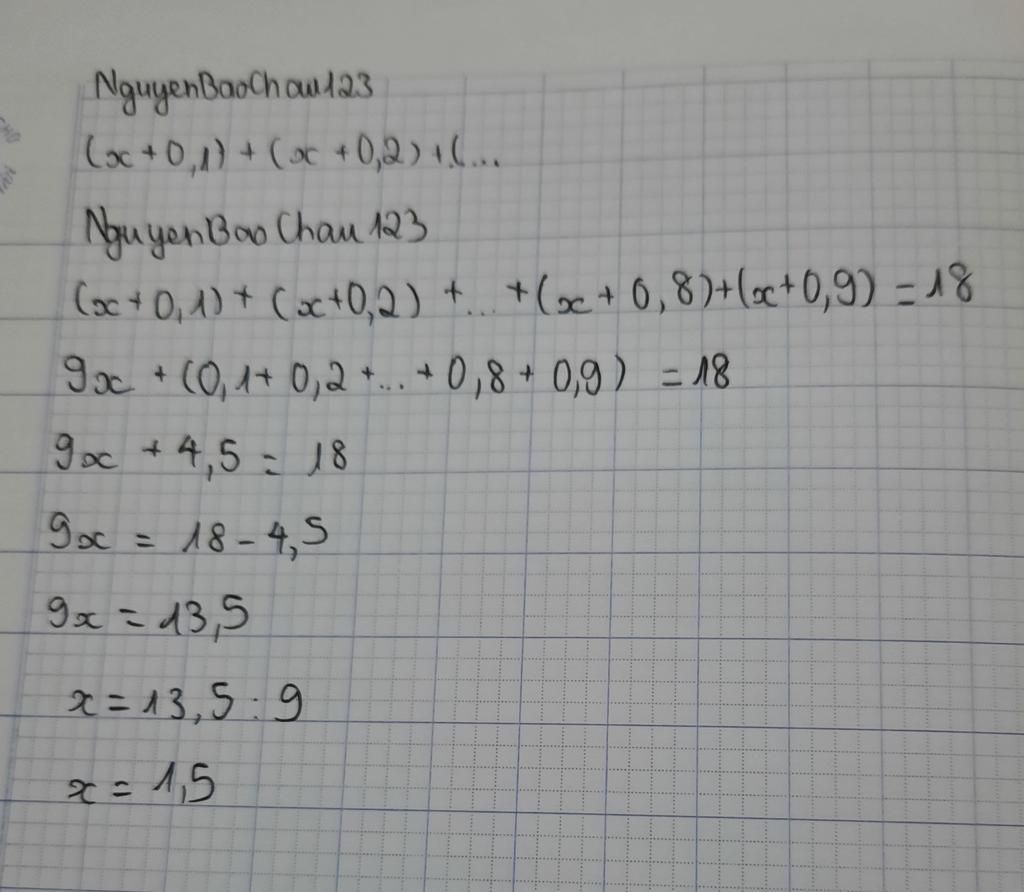 NguyenBaoChau123
(x+0,1) + (x+0,2) + (...
NguyenBaoChau123
(x+0,1) + (x+0,2) + ... + (x+0,8)+(x+0,9) = 18
9x + (0,1+ 0,2 +... + 0,8 + 0,9) = 18
9x + 4,5 = 18
9x = 18 - 4,5
9x = 13,5
x = 13,5 : 9
x = 1,5